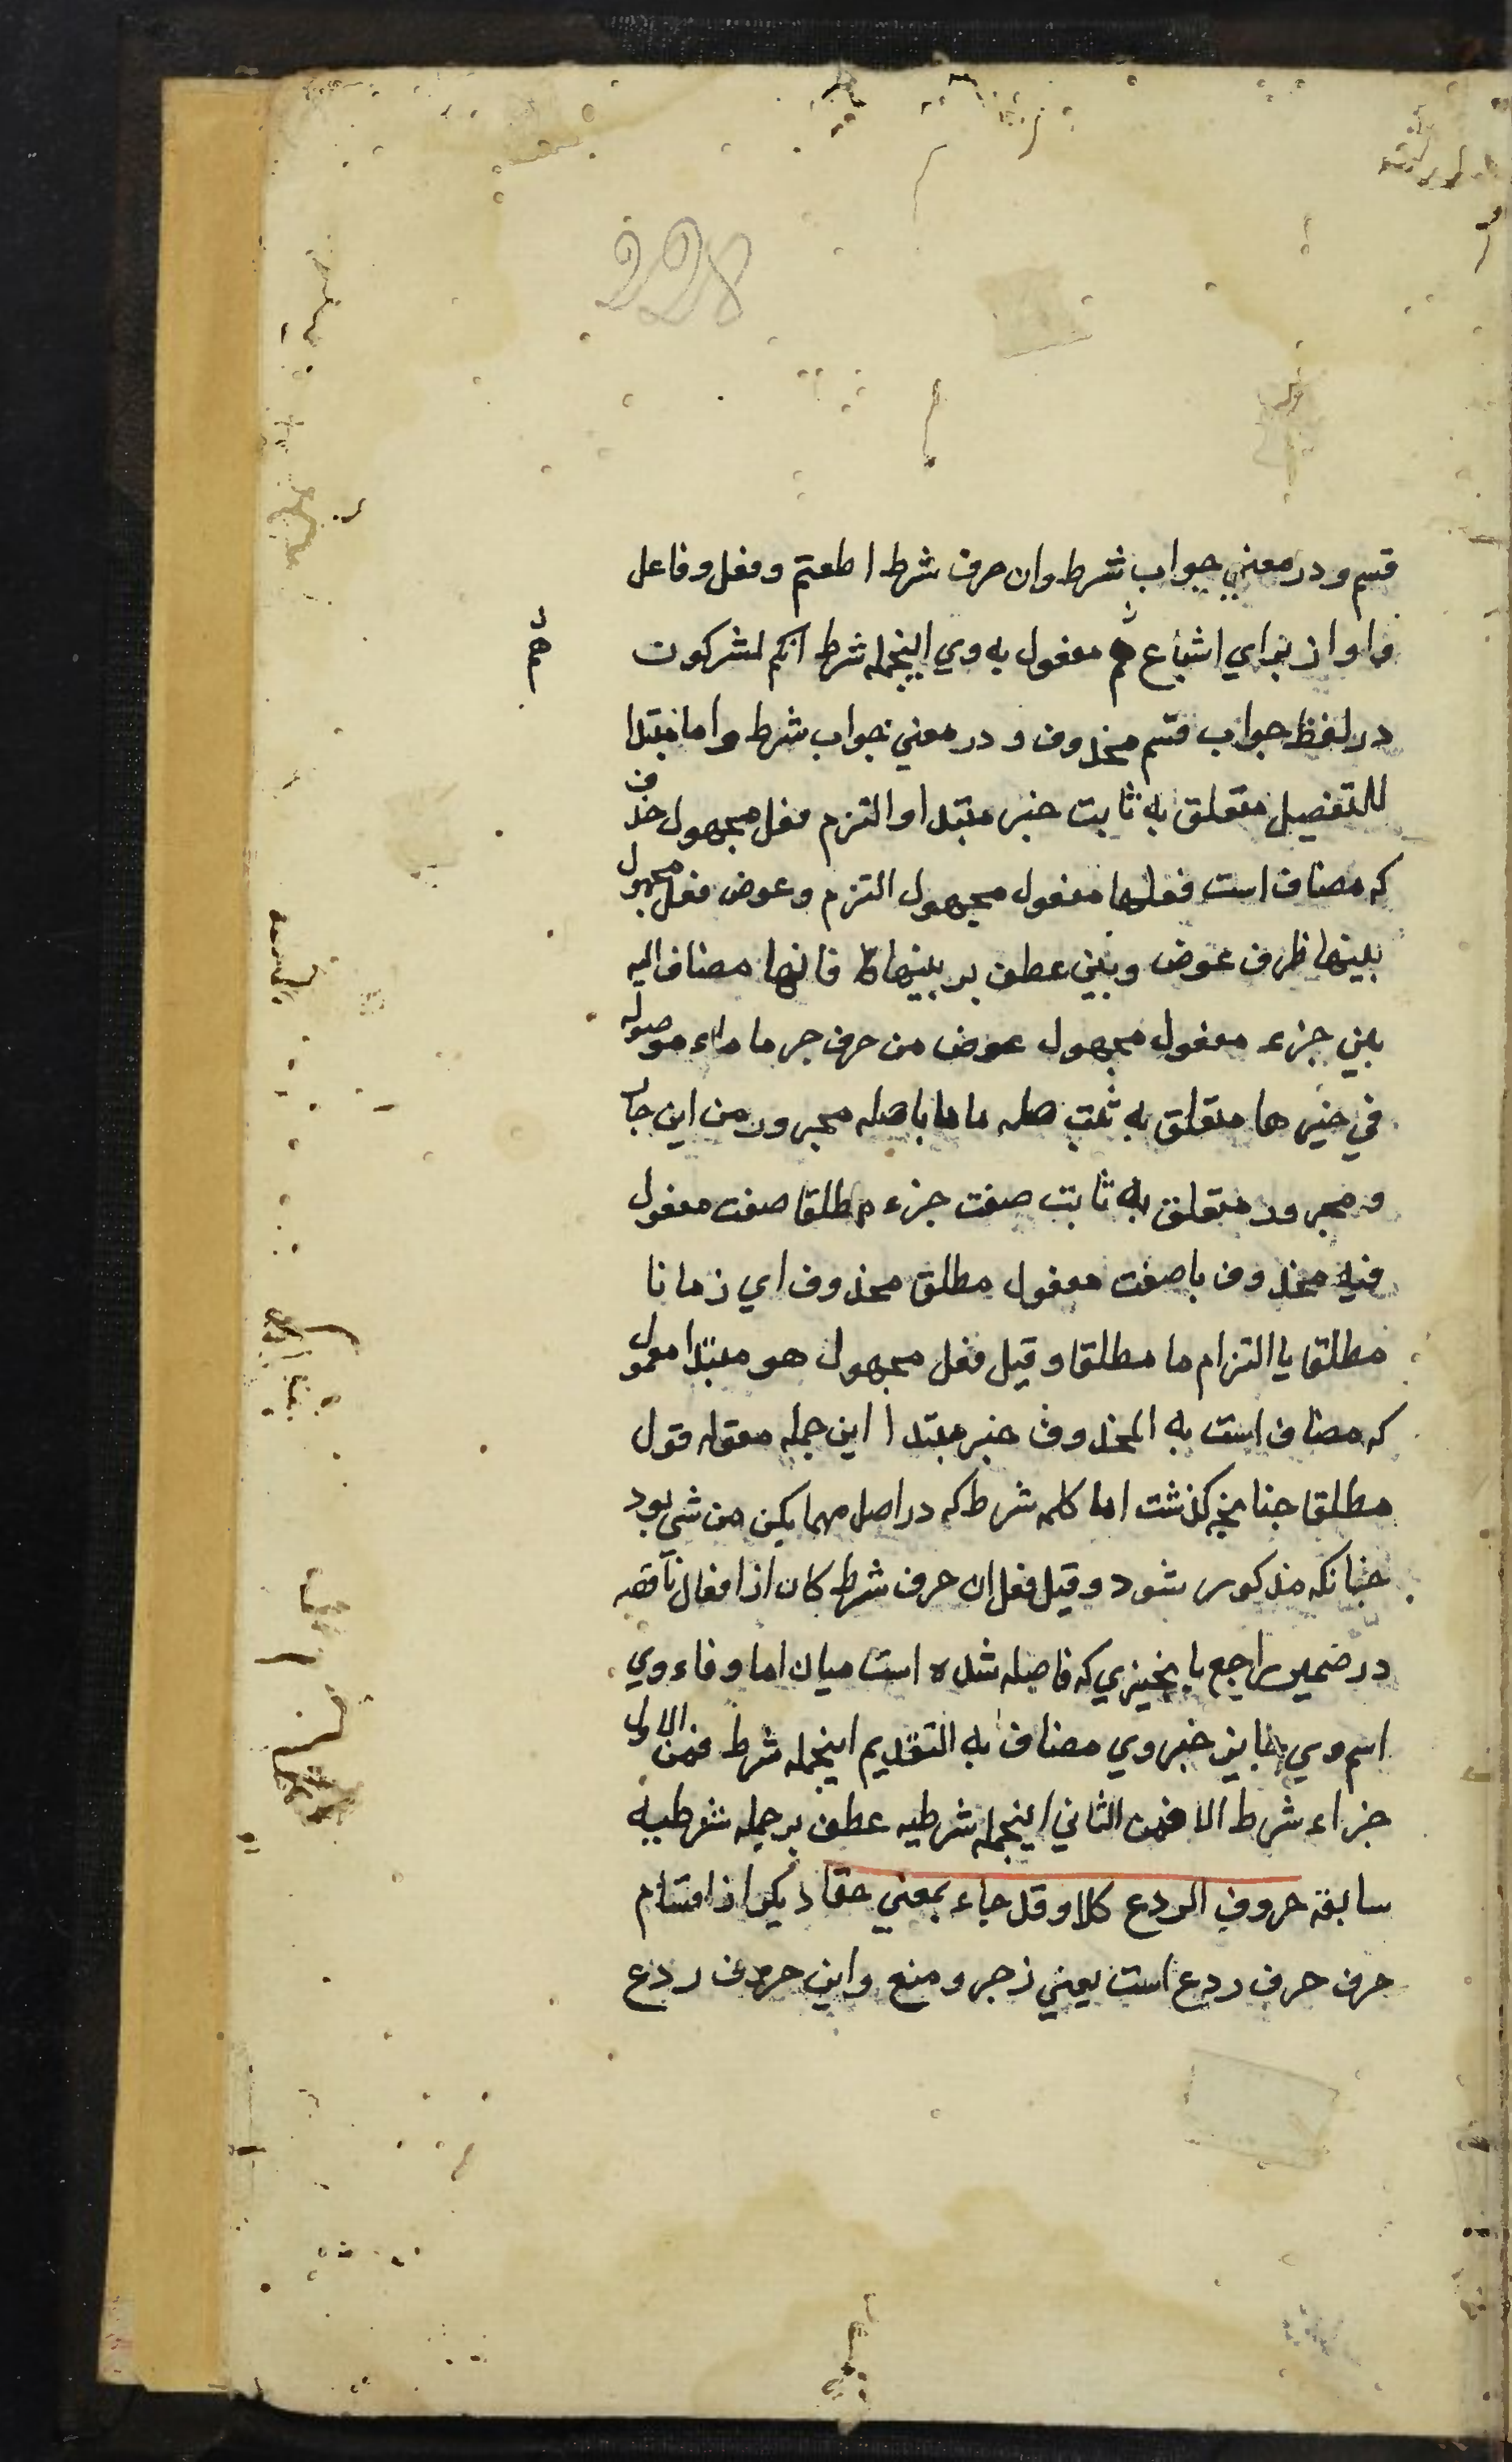 228
قسم و در معني جواب شرط وان حرف شرط اطعتم وفعل وفاعل
واو از براي اشباع هم مفعول به وي اينجمله شرط انكم لمشركون
هم
در لفظ جواب قسم محذوف و در معني جواب شرط واما مبتدا
للتفصيل متعلق به ثابت خبر مبتدا والتزم فعل مجهول حذف
كه مضاف است فعلها مفعول مجهول التزم وعوض فعل مجهول
بينها ظرف عوض وبين عطف بر بينها فائها مضاف اليه
بين جزء مفعول مجهول عوض من حرف جر ما ماء موصوله
في حيزها متعلق به ثبت صله ما ما باصله مجرور من اين جار
و مجرور متعلق به ثابت صفت جزء مطلقا صفت مفعول
فيه محذوف يا صفت مفعول مطلق محذوف اي زمانا
مطلقا يا التزام ما مطلقا وقيل فعل مجهول هو مبتدا معمول
كه مضاف است به المحذوف خبر مبتدا اين جمله مقوله قول
مطلقا جنانچه كذشت اما كلمه شرط كه در اصل مهما يكن من شي بود
جنانكه مذكور شود وقيل فعل ان حرف شرط كان از افعال ناقصه
در ضمير راجع با نچيزي كه فاصله شده است ميان اما و فاء وي
اسم وي جايز خبر وي مضاف به التقديم اينجمله شرط فمن الاول
جزاء شرط الا فمن الثاني اينجمله شرطيه عطف بر جمله شرطيه
سابقه حروف الردع كلا وقد جاء بمعني حقا ديكر از اقسام
حرف حرف ردع است يعني زجر ومنع واين حرف ردع